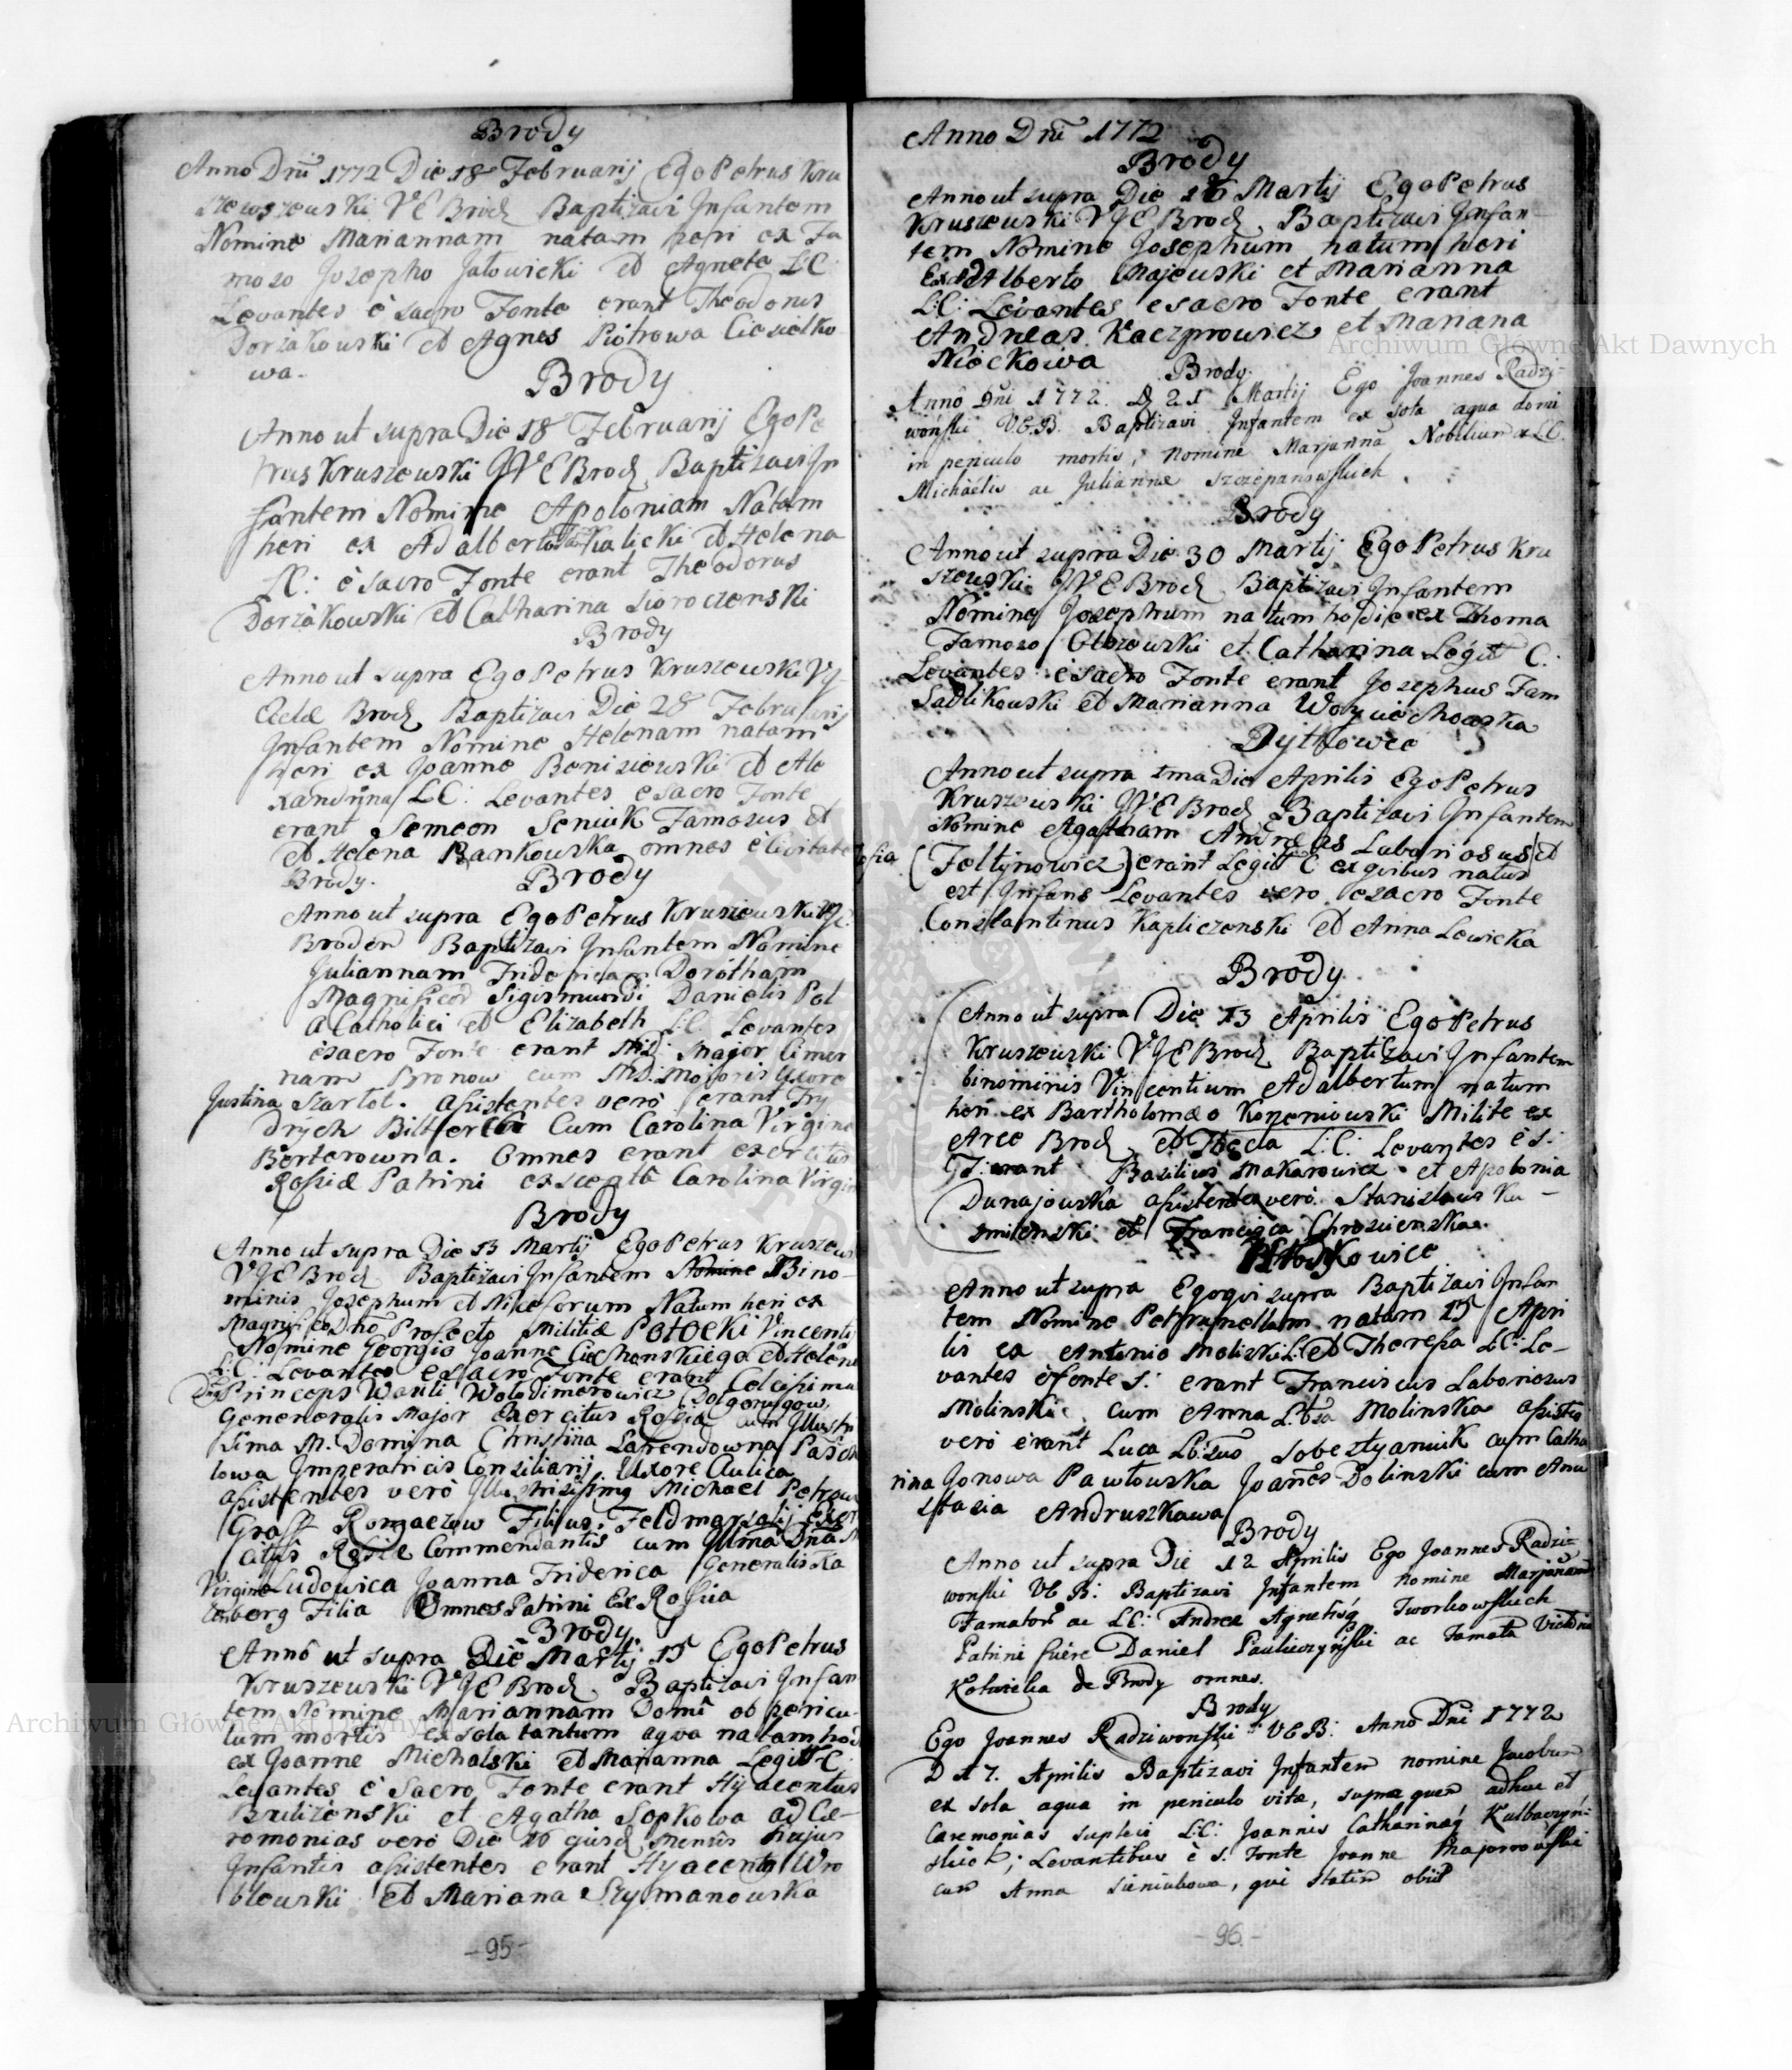 Brody
Anno Dni 1772 Die 18 Februarij Ego Petrus Kru
szewszewski V E Brod Baptizavi Infantem
Nomine Mariannam natam heri ex Fa
moso Josepho Jałowicki et Agneta LC
Levantes è sacro Fonte erant Theodorus
Dorzakowski et Agnes Piotrowa Ciesielko
wa.
Brody
Anno ut supra Die 18 Februarij Ego Pe
trus Kruszewski VE Brod Baptizavi In
fantem Nomine Apoloniam Natam
heri ex Adalberto Skalicki et Helena
LC: è sacro Fonte erant Theodorus
Dorzakowski et Catharina Sioroczenski
Brody
Anno ut supra Ego Petrus Kruszewski V
Brod Baptizavi Die 28 Februarij
Infantem Nomine Helenam natam
heri ex Joanne Benisiewski et Ale
xandrina LC: Levantes e sacro Fonte
erant Semeon Seniuk Famosus et
et Helena Bankowska omnes è Civitate
Brody.
Brody
Anno ut supra Ego Petrus Kruszewski
Broden Baptizavi Infantem Nomine
Juliannam Fridericam Dorotham
Magnificor Sigismundi Danielis Pol
aCatholici et Elizabeth L:C: Levantes
è sacro Fonte erant Major Cimer
nam Bronow cum Majoris Uxore
Justina Szartol. assistentes verò erant Fry
drych Cum Carolina Virgine
Berterowna. Omnes erant exercitus
Rossiæ Patrini excepta Carolina Virgin
Brody
Anno ut supra Die 13 Martij Ego Petrus Kruszew
VJE Brod Baptizavi Infantem Nomine Bino-
minis Josephum et Niceforum Natum heri ex
Magnifico Dno Profecto Militiæ Potocki Vincentij
Nomine Georgio Joanne Ciechonskiego et Helena
L:C: Levantes è sacro Fonte erant Celcissimus
Dux Princeps Wasili Wolodimerowicz Dolgorugow,
Generalis Major Exercitus Rossiæ cum Illustri
sima M. Domina Christina Larendowna Pasch
lowa Imperatricis Consiliarij Uxore Aulica
assistentes verò Illustrissimus Michael Petrow
Graff Romaczow Filius Feldmarsalij Exer
citus Rossiæ Commendantis cum Illma Dna
Virgine Ludovica Joanna Friderica Generalis Ka
berg Filia Omnes Patrini Ex Rossiia
Brody
Anno ut supra Die Martij 15 Ego Petrus
Kruszewski VJE Brod Baptizavi Infan
tem Nomine Mariannam Domi ob pericu-
lum mortis ex sola tantum aqva natam hod
ex Joanne Michalski et Marianna Legitt C
Levantes è Sacro Fonte erant Hyacentus
Brulizenski et Agatha Sopkowa ad Cæ-
remonias verò Die 16 ejusd Mensis hujus
Infantis assistentes erant Hyacenty Wro
blewski et Mariana Szymanowska
- 95 -
Anno Dni 1772
Brody
Anno ut supra Die 16 Martij Ego Petrus
Kruszewski VJE Brod Baptizavi Infan-
tem Nomine Josephum natum heri
Ex Adalberto Majewski et Marianna
L:C: Levantes e sacro Fonte erant
Andreas Kaczprowicz et Mariana
Nieckowa
Brody.
Anno Dni 1772. D 21 Martij Ego Joannes Radzi-
wonski V.E.B. Baptizavi Infantem ex sola aqua domi
in periculo mortis, nomine Marjanna Nobilium LC.
Michaelis ac Julianne Szczepanowskich.
Brody
Anno ut supra Die 30 Martij Ego Petrus Kru
szewski JVE Brod Baptizavi Infantem
Nomine Josephum natum hodie ex Thoma
Famoso Olszewski et Catharina Legitt C:
Levantes è sacro Fonte erant Josephus Fam
Sadlikowski et Marianna Woyciechowska
Dytkowce
Anno ut supra 1ma Die Aprilis Ego Petrus
Kruszewski JVE Brod Baptizavi Infantem
Nomine Agatham Andreas Laboriosus et
(Feltynowicz) erant Legitt C ex quibus natus
est Infans Levantes vero e sacro Fonte
Constantinus Kapliczenski et Anna Lewicka
Brody.
Anno ut supra Die 13 Aprilis Ego Petrus
Kruszewski VJE Brod Baptizavi Infantem
binominis Vincentium Adalbertum natum
heri ex Bartholomæo Kopeniowski Milite ex
Arce Brod et Thecla L:C: Levantes è S:
F: erant Basilius Makarowicz et Apolonia
Dunajowska assistentes verò Stanislaus Ku-
smilenski et Francisca Chrosienska.
Anno ut supra Ego qvi supra Baptizavi Infan
tem Nomine Petrunellam natam 15 Apri
lis ex Antonio Moliski L et Theresa L:C: Le-
vantes è fonte S: erant Franciscus Laboriosus
Molinski cum Anna Molinska assiste
verò erant Luca Sobestyaniuk cum Catha
rina Jonowa Pawłowska Joannes Dolinski cum Ana
stasia Andruszkowa
Brody
Anno ut supra Die 12 Aprilis Ego Joannes Radzi-
wonski VEB: Baptizavi Infantem nomine Marjanam
Famator ac LC: Andreæ Agnetisq Tworkowskich
Patrini fuere Daniel Pauliczyński ac Famata Victoria
de Brody omnes.
Brody
Ego Joannes Radziwonski VEB: Anno Dni 1772
D 17. Aprilis Baptizavi Infantem nomine Jacobum
ex sola aqua in periculo vitæ, supra quem adhuc et
Cæremonias suplevi L:C: Joannis Catharinaq Kulbaczyń-
skich; Levantibus è S. Fonte Joanne Majorowski
cum Anna Sieniukowa, qui statim obiit
- 96 -
Archiwum Główne Akt Dawnych
Archiwum Główne Akt Dawnych